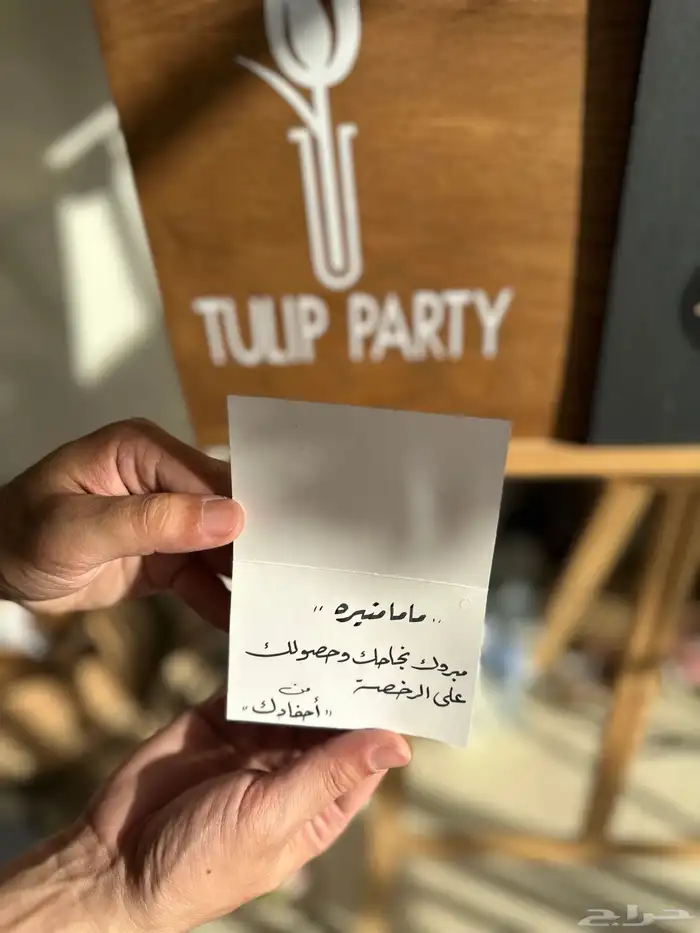 TULIP PARTY
" ماما منيره "
مبروك نجاحك وحصولك
على الرخصة
من
"أحفادك"
حراج